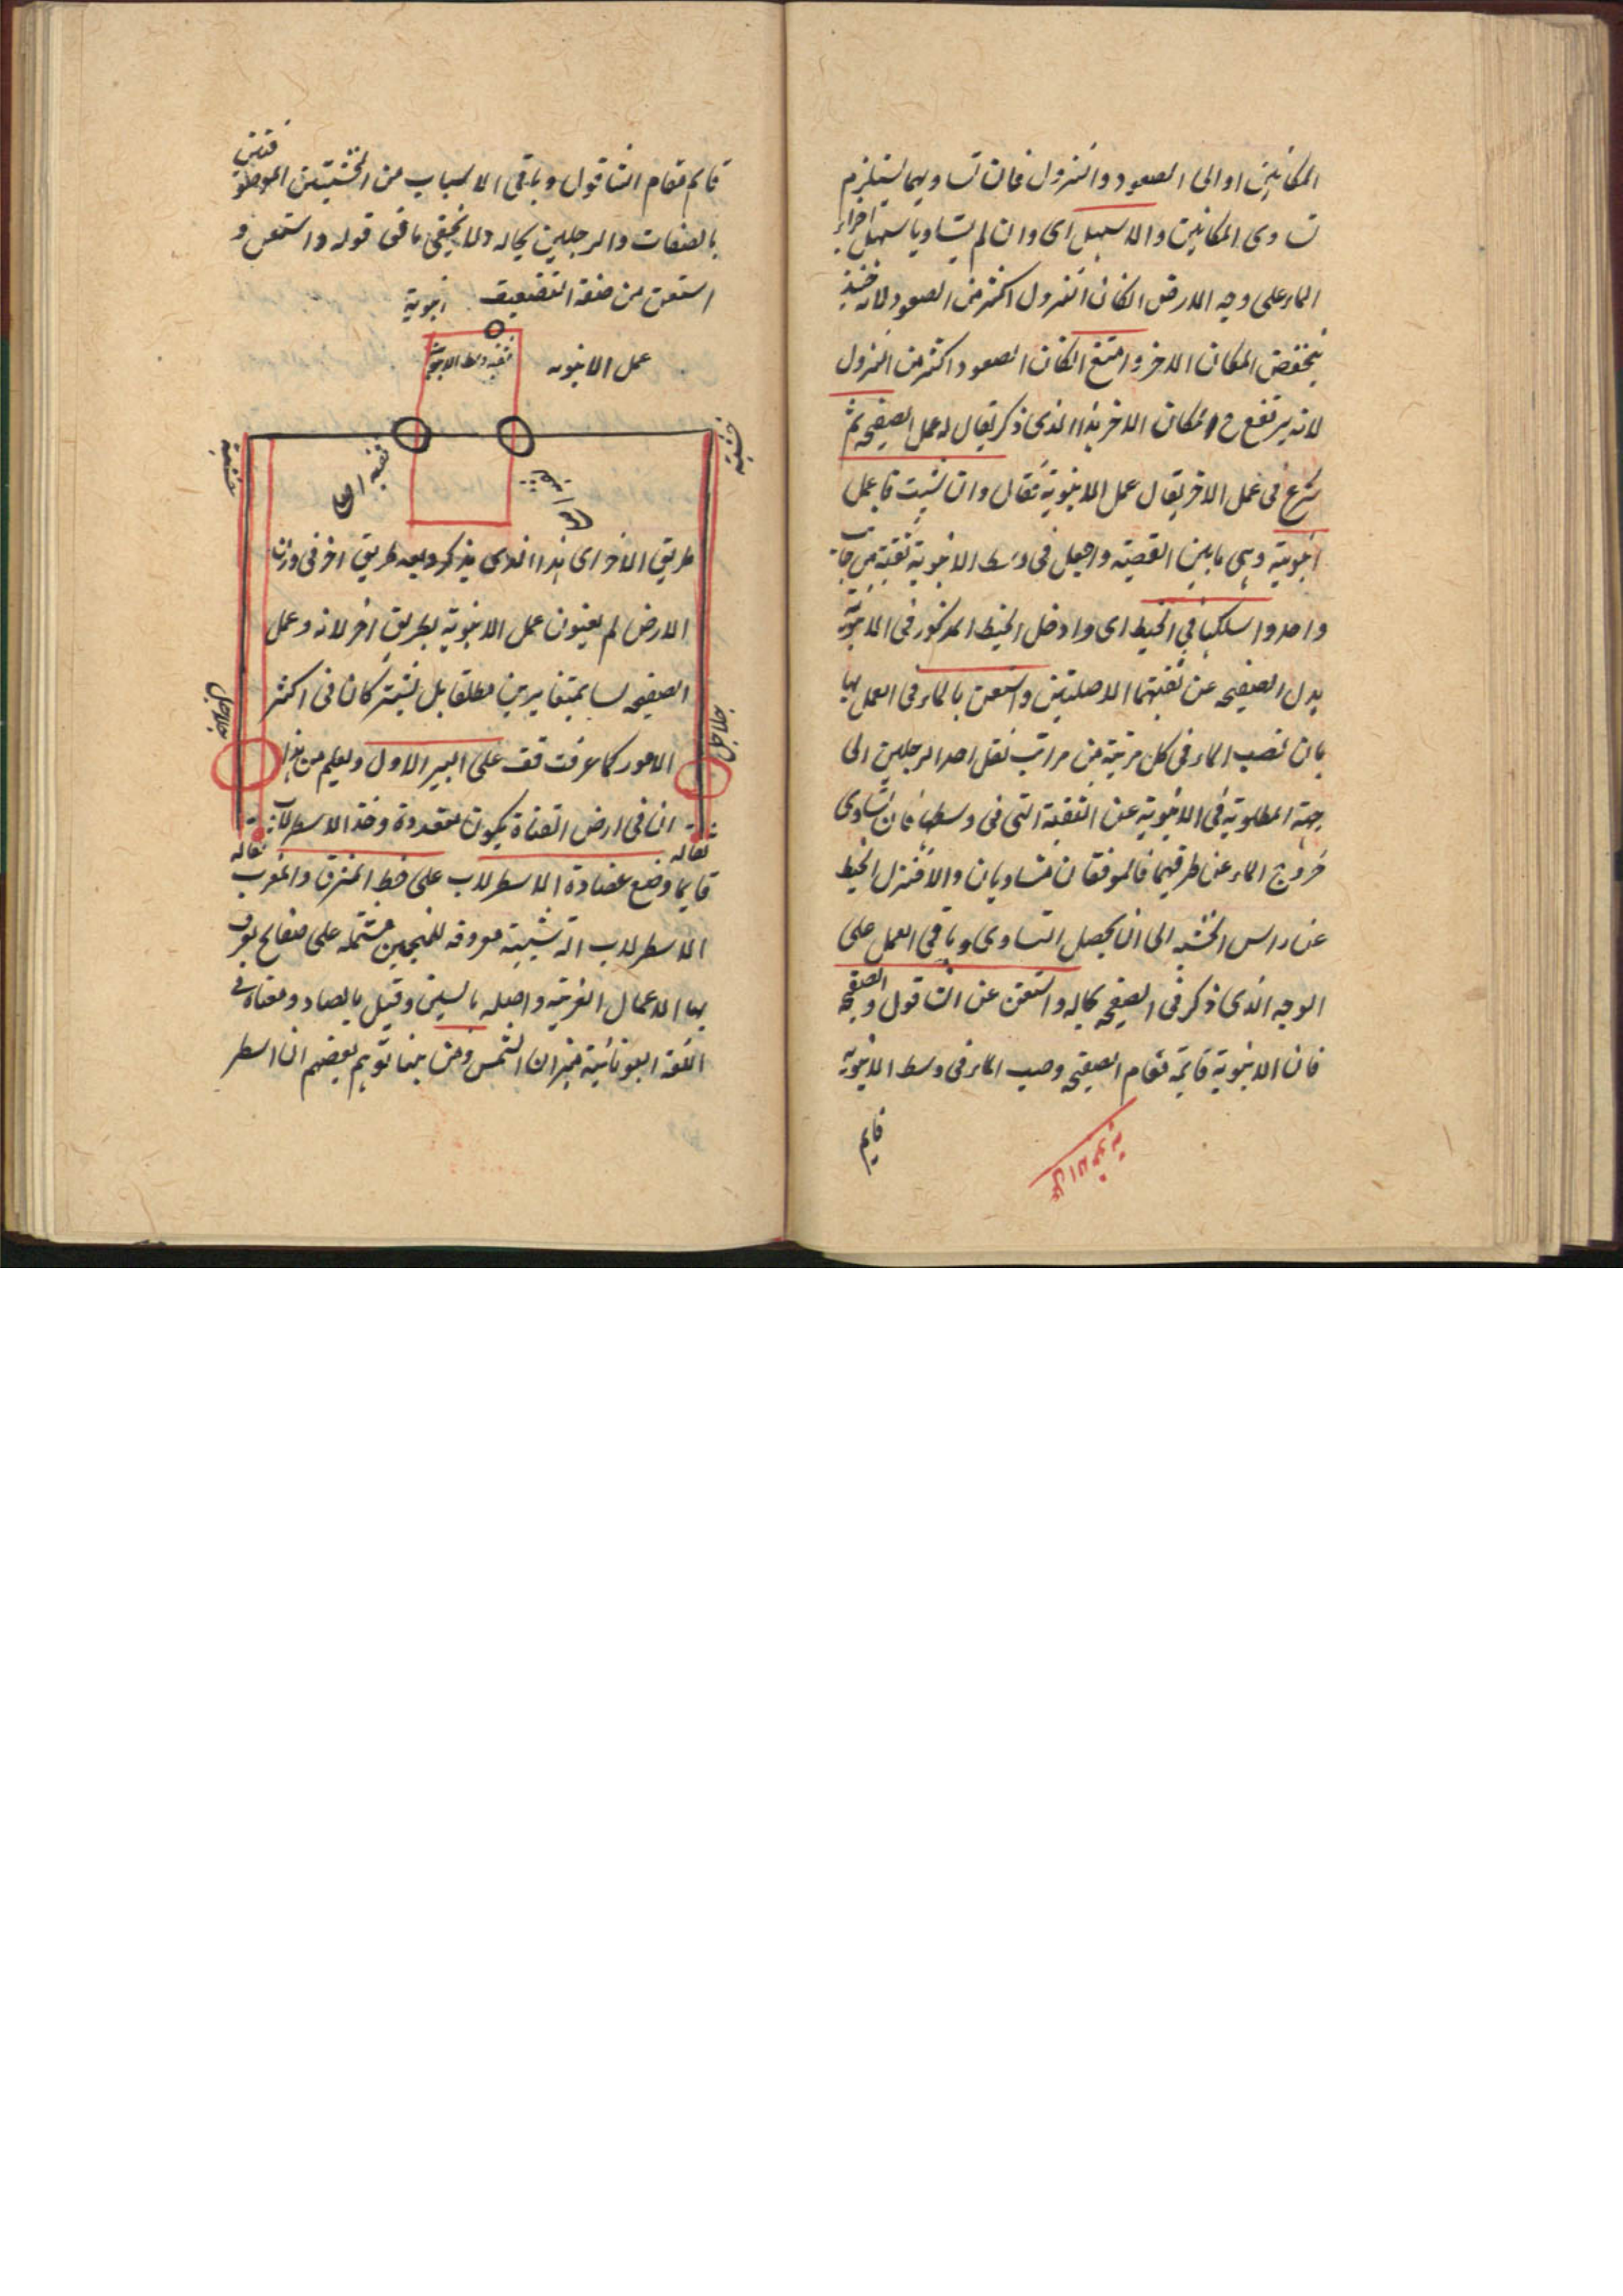 المكانين او الى الصعود والنزول فان تساويهما يستلزم
تساوى المكانين والا سهل اى وان لم يتساويا سهل اجراء
الماء على وجه الارض ان كان النزول اكثر من الصعود لانه حينئذ
ينخفض المكان الاخر وامتنع ان كان الصعود اكثر من النزول
لانه يرتفع ح المكان الاخر هذا الذى ذكر يقال له عمل الصفيحة ثم
شرع فى عمل الاخر يقال عمل الانبوبة فقال وان شئت فاعمل
انبوبة وهى ما بين القصبة واجعل فى وسط الانبوبة ثقبة من جانب
واحد واسلكها فى الخيط اى وادخل الخيط المذكور فى الانبوبة
بدل الصفيحة عن ثقبتهما الاصليتين واستعن بالماء فى العمل بها
بان تصب الماء فى كل مرتبة من مراتب نقل احد الرجلين الى
جهة المطلوبة فى الانبوبة عن الثقبة التى فى وسطها فان تساوى
خروج الماء عن طرفيها فالموقفان متساويان والا فتنزل الخيط
عن راس الخشبة الى ان يحصل التساوى وباقى العمل على
الوجه الذى ذكر فى الصفيحة بحاله واستغن عن الشاقول والصفيحة
فان الانبوبة قائمة مقام الصفيحة وصب الماء فى وسط الانبوبة
قايم
عمل الانبوبة
قايم مقام الشاقول وباقى الاسباب من الخشبتين الموصوفتين
بالصفات والرجلين بحاله ولا يخفى ما فى قوله واستعن و
استغن من صنعة التضعيف
انبوبة
عمل الانبوبه
ثقبة وسط الانبوبة
خشبة
خشبة
ثقبة
طريق الاخر اى هذا الذى يذكر وبعد طريق اخر فى وزن
الارض لم يعنون عمل الانبوبة بطريق اخر لانه وعمل
الصفيحه ليسا بمتغايرين مطلقا بل يشتركان فى اكثر
الامور كما عرفت قف على البير الاول ويعلم من هذا
ان فى ارض القناة يكون متعددة وخذ الاسطرلاب
ثقاله
ثقاله
جلاجل
جلاجل
قايما وضع عضادة الاسطرلاب على خط المشرق والمغرب
الاسطرلاب الة شبيهة معروفه للمنجمين مشتمله على صفايح يعرف
بها الاعمال الغريبة واصله بالسين وقيل بالصاد ومعناه فى
اللغة اليونانية ميزان الشمس ومن هنا توهم بعضهم ان اسطر